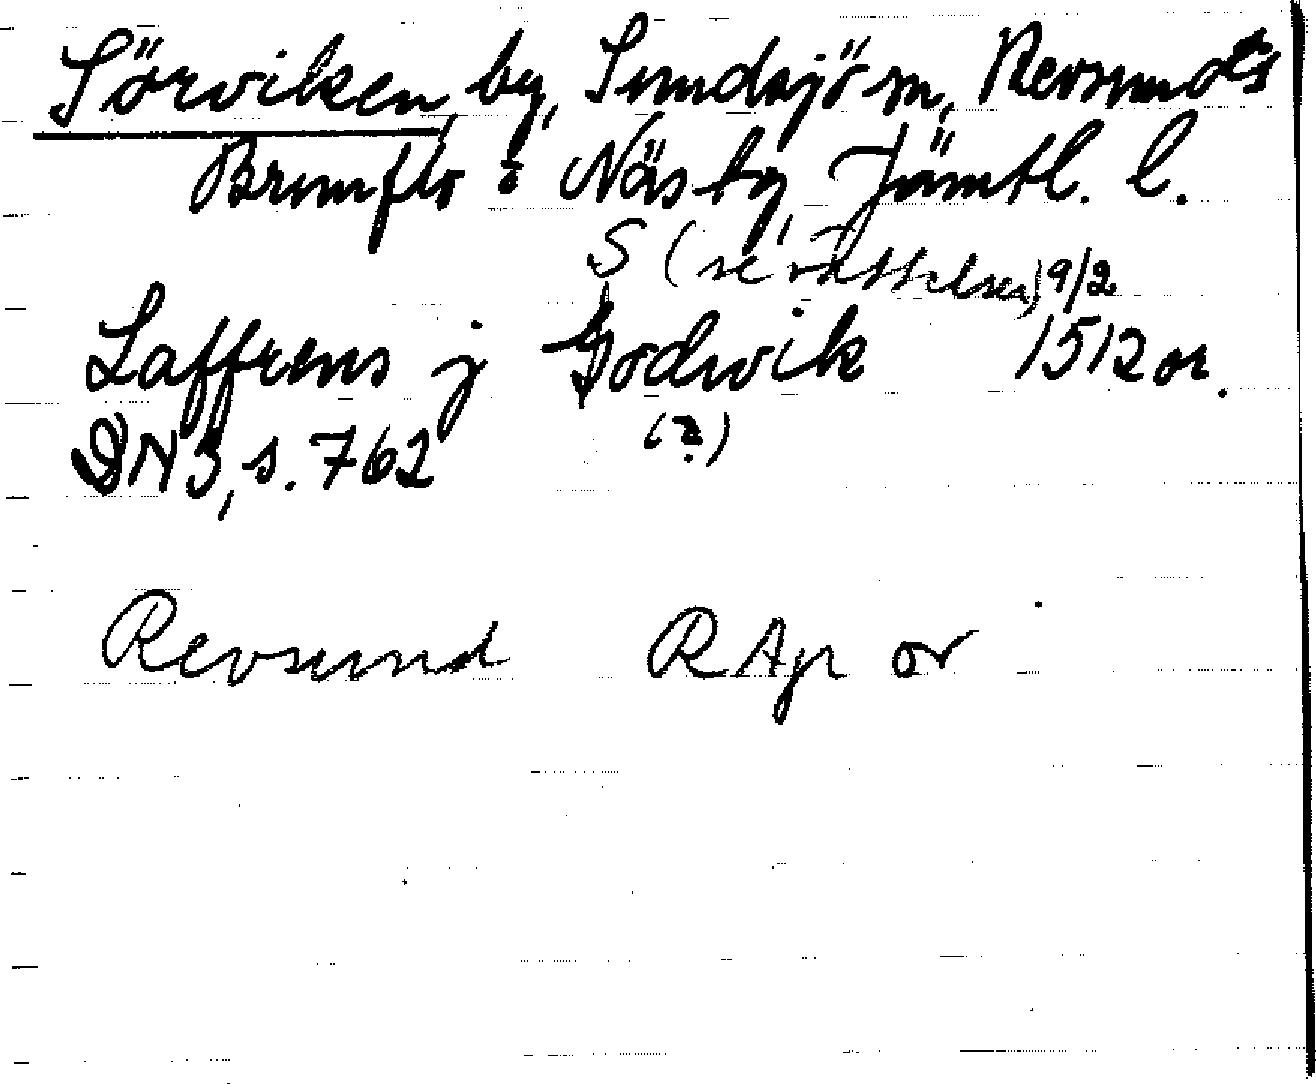 Sörviken, by, Sundsjö sn, Revsunds
Brunflo o Näs tg, Jämtl. l.
S (se rättelser) 9/2
Laffrens j Godwik 1512 or.
DN 3, s. 762 (?)
Revsund RApr or